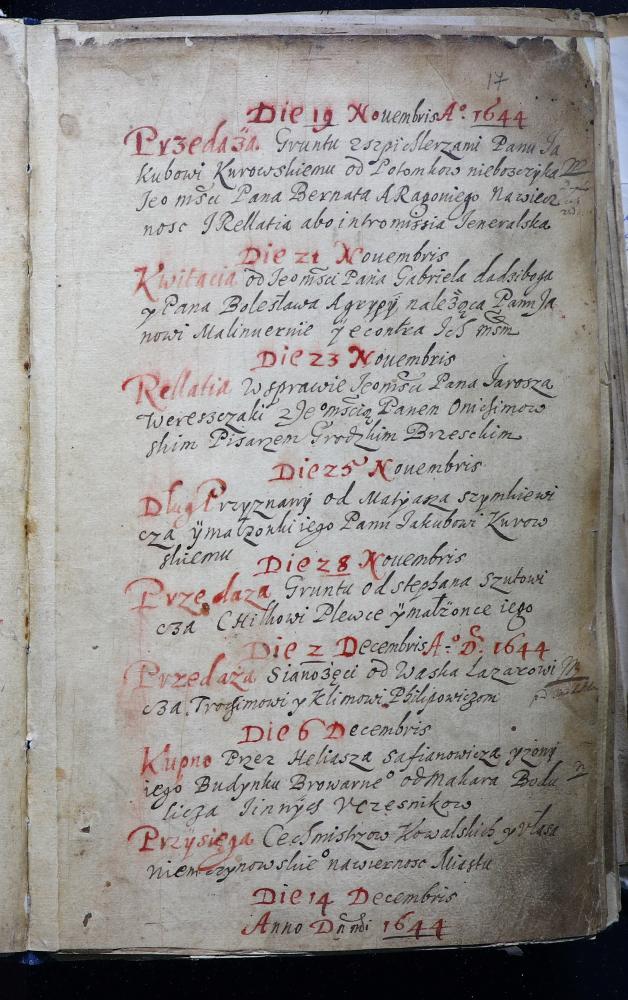 17
Die 19 Nouembris Aº 1644
Przedaża Gruntu z szpichlerzami Panu Ja
kubowi Kurowskiemu od Potomkow niebosczyka
Jeo mści Pana Bernata ARagoniego na wiecz
nosc J Rellatia abo intromissia Jeneralska
Die 21 Nouembris
Kwitacia od Jeomści Pana Gabriela dadziboga
y Pana Bolesława Agrypÿ należąca Panu Ja
nowi Malinuernie ÿ econtra Ich mśm
Die 23 Nouembris
Rellatia W sprawie Jeomści Pana Jarosza
Wereszczaki z Jeºmścią Panen Onichimow
skim Pisarzem Grodzkim Brzesckim
Die 25 Nouembris
Dług Przyznanÿ od Matÿasza Szymkiewi
cza ÿ małżonki iego Panu Jakubowi Kurow
skiemu
Die 28 Nouembris
Przedaża Gruntu od stephana Szutowi
cza Chilkowi Plewce ÿ małżonce iego
Die 2 Decembris Aº D. 1644
Przedaża Sianożęci od Waska Lazarowi
cza Trochimowi y Klimowi Philipowiczom
Die 6 Decembris
Kupno Przez Heliasza Safianowicza y żony
iego Budynku Browarneº od Makara Bodu
licza J innych Vczęsnikow
Przysięga Cechmistrzow Kowalskich y Vlasa
niemczynowskieº na wiernosc Miastu
Die 14 Decembris
Anno Dnni 1644